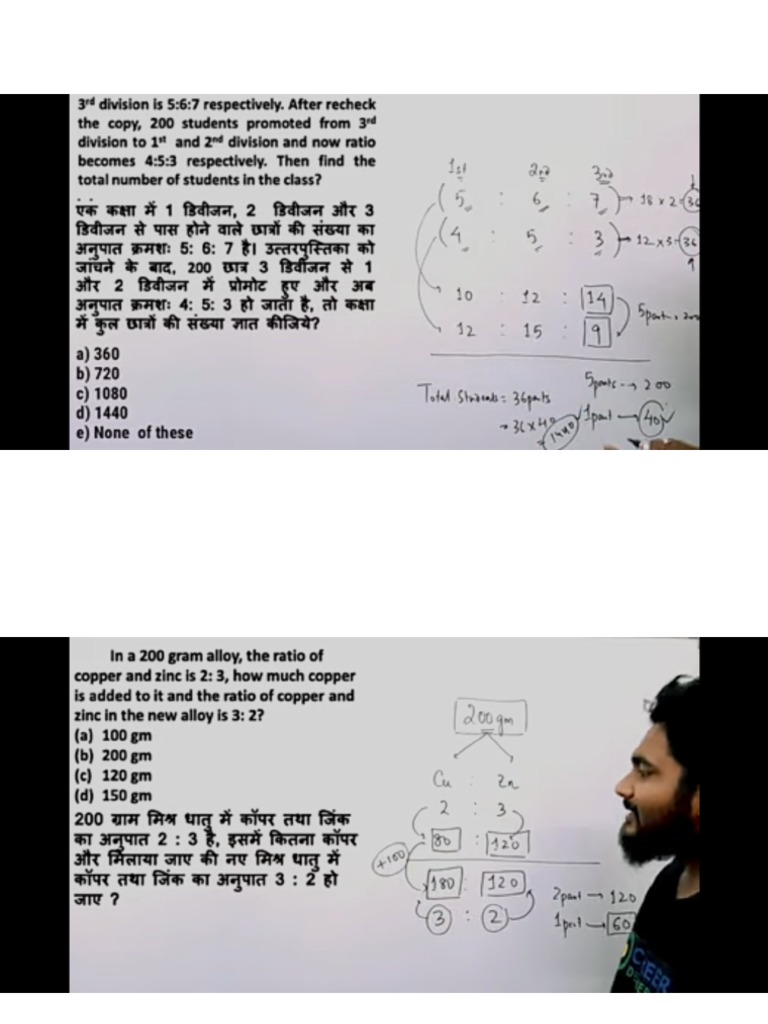 3rd division is 5:6:7 respectively. After recheck
the copy, 200 students promoted from 3rd
division to 1st and 2nd division and now ratio
becomes 4:5:3 respectively. Then find the
total number of students in the class?
एक कक्षा में 1 डिवीजन, 2 डिवीजन और 3
डिवीजन से पास होने वाले छात्रों की संख्या का
अनुपात क्रमशः 5: 6: 7 है। उत्तरपुस्तिका को
जांचने के बाद, 200 छात्र 3 डिवीजन से 1
और 2 डिवीजन में प्रोमोट हुए और अब
अनुपात क्रमशः 4: 5: 3 हो जाता है, तो कक्षा
में कुल छात्रों की संख्या ज्ञात कीजिये?
a) 360
b) 720
c) 1080
d) 1440
e) None of these
1st 2nd 3rd
(5 : 6 : 7) → 18 × 2 = 36
(4 : 5 : 3) → 12 × 3 = 36
10 : 12 : 14
12 : 15 : 9
5part
5parts → 200
Total Students = 36parts
1part → 40
→ 36 × 40
1440
In a 200 gram alloy, the ratio of
copper and zinc is 2: 3, how much copper
is added to it and the ratio of copper and
zinc in the new alloy is 3: 2?
(a) 100 gm
(b) 200 gm
(c) 120 gm
(d) 150 gm
200 ग्राम मिश्र धातु में कॉपर तथा जिंक
का अनुपात 2 : 3 है, इसमें कितना कॉपर
और मिलाया जाए की नए मिश्र धातु में
कॉपर तथा जिंक का अनुपात 3 : 2 हो
जाए ?
200gm
Cu : Zn
2 : 3
80 : 120
+100
180 : 120
3 : 2
2part → 120
1part → 60